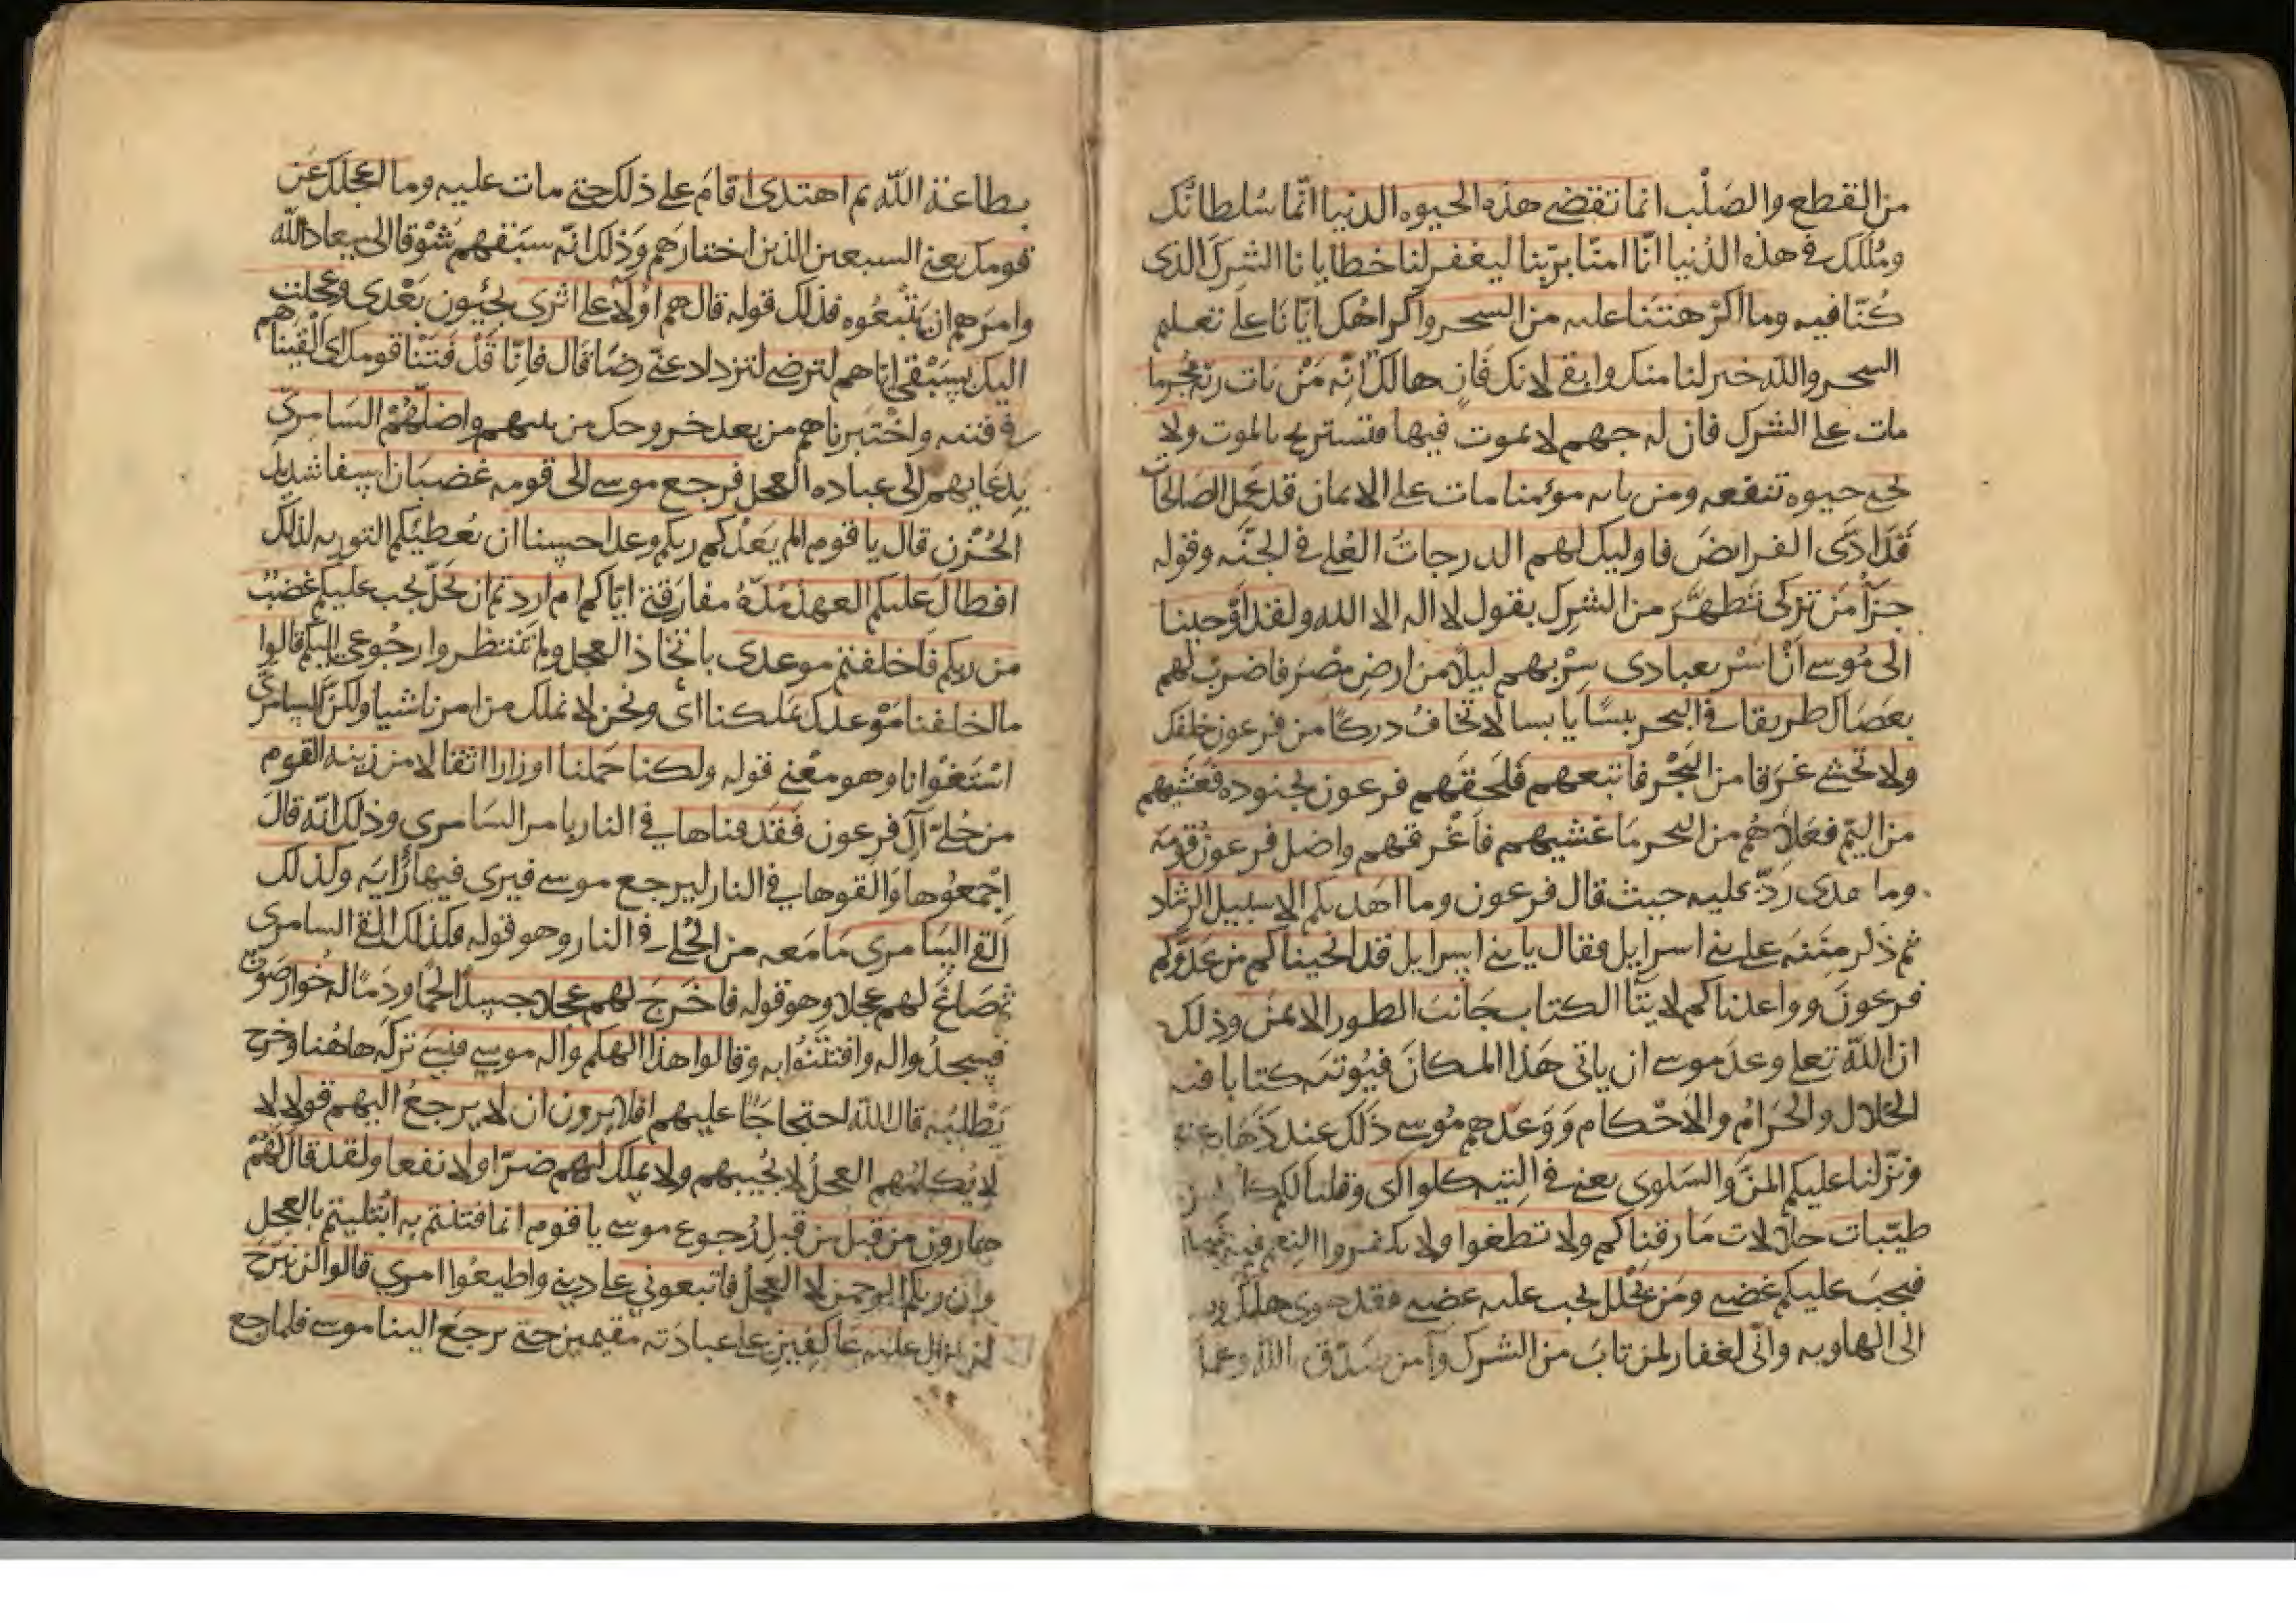 من القطع والصَلْب انما تقضى هذه الحيوه الدنيا انّما سُلطانُك
ومُلكك فى هذه الدُنيا انّا امنّا بربّنا ليغفر لنا خطايانا الشرك الذى
كُنّا فيه وما اكْرَهتَنا عليه من السحر واكراهُك ايّانا على تعلم
السحر والله خير لنا منك وابقى لانك فَانٍ هالك انّه مَنْ يات ربّه مُجرما
مات على الشرك فان له جهنم لا يموت فيها فتستريح بالموت ولا
يحيى حيوه تنفعه ومن ياته موئمنا مات على الايمان قد عَمِل الصَالِحَات
قَدْ ادّى الفرايضَ فاوليك لهم الدرجاتُ العُلى فى الجنّه وقوله
جزآءُ مَن تزكى تَطهَّرَ من الشرِك بقول لا اله الا الله ولقد اوْحينا
الى مُوسى انْ اسْرِ بعبادى سِرْ بهم ليلًا من ارضِ مصْرَ فاضرب لهم
بعصَاك طريقا فى البحر يبسًا يابسا لا تخافُ دركًا من فرعون خلفك
ولا تخشى غرَقا من البَحْر فاتبعهم فَلَحقَهم فرعون بجنوده فَغَشِيَهم
من اليَمّ فعَلَاهُم من البحر مَا غشيهم فاَغْرقهم واضل فرعونُ قومَه
وما هدى رَدّ عليه حيث قال فرعون وما اهديكم الا سبيل الرشاد
ثم ذكر مِنَنَه على بنى اسرايل فقال يا بنى اسرايل قد انجيناكم من عَدوّكم
فرعونَ وواعدناكم لايتآ الكتاب جَانبَ الطور الايمنَ وذلك
ان اللّه تعلى وعدَ موسى ان ياتى هَذا المكانَ فيُوتيَه كتابا فيه
الحلال والحَرامُ والاحْكام وَوَعَدهم مُوسى ذلك عند ذَهَابه عنهم
ونزّلنا عليكم المنّ والسَلوى يعنى فى التيه كلوا اى وقلنا لكم كلوا من
طيّبات حلالات مَا رزقناكم ولا تطغوا ولا تكفروا النِعم فيه
فيجبَ عليكم غضبى ومَن يَحْلل يجب عليه غضبى فقد هوى هلك
الى الهاويه وانّى لغفار لمن تابَ من الشرك وآمن صَدّق الله وعمل
بطاعة اللّه ثم اهتدى اقامَ على ذلك حتى مات عليه وما اعجلك عَن
قومك يعنى السبعين الذين اختارَهم وَذلك انّه سبَقهم شَوْقا الى ميعاد اللّه
وامرَهم ان يَتْبعُوه فذلك قوله قال هم اولآء على اثرى يجيُون بَعْدى وعجلت
اليك بسَبْقى اياهم لترضى لتزداد عنّى رضًا قال فانّا قَدْ فَتنّا قومك اى القيناهم
فى فتنه واخْتبرناهم من بعدك خروجك من بينهم واضلّهُمْ السَامرىّ
بِدعَايهم الى عباده العجل فرجع موسى الى قومه غضبَان اسِفا شديد
الحُزن قال يا قوم الم يَعدْكم ربكم وعدا حسنا ان يُعطيَكم التوريه لذلك
افطالَ عليكم العهدُ مُدّةُ مفارَقتى ايّاكم ام اردتم ان يحلّ يجب عليكم غضبٌ
من ربكم فاَخلفتم موعدى باتّخاذ العجل ولم تنتظروا رجُوعى اليكم قالوا
ما اخلفنا مَوْعدك بمَلكنا اى ونحن لا نملك من امرنا شيا ولكنّ السامرىّ
اسْتَغْوانا وهو معْنى قوله ولكنا حَملنا اوزارا اثقالا من زينه القوم
من حُلىّ آل فرعون فَقذفناها فى النار بامر السَامرى وذلك انّه قالَ
اِجْمعُوها وَالقوها فى النار ليرجع موسى فيرى فيها رَايَه وكذلك
القى السَامرى مَا مَعه من الحُلى فى النار وهو قوله فكذلك القى السامرى
ثم صَاغَ لهم عجلا وهو قوله فاَخرَجَ لهم عجلا جسدًا لحْمًا ودَمًا له خُوار صَوتٌ
فسجدُوا له وافتتنُوا به وقالوا هذا الهكم واله موسى فنسى تركَه هاهُنا وخرج
يَطْلبُه قال اللّه احتجاجًا عليهم افلا يرون ان لا يرجعُ اليهم قولا لا
لا يُكلمُهم العجلُ لا يُجيبهم ولا يملك لهم ضرّا ولا نفعا ولقد قال لهُمْ
هارون من قبلُ من قبلِ رُجوع موسى يا قوم انما فتنتم به ابْتليتم بالعجلِ
وان ربكم الرحمن لا العجلُ فاتبعونى على دينى واطيعُوا امرى قالوا لن نبرح
لن نزال عليه عَاكفِينَ على عبادَته مقيمين حتى يرجعَ الينا موسى فلما رجع